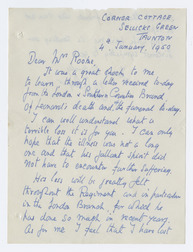 CORNER COTTAGE
GREEN
TAUNTON
4th January, 1960
Dear Mrs Poole,
It was a great shock to me
to learn, through a letter received today
from the London & Southern Counties Branch
of Leonard's death and the funeral to-day.
I can well understand what a
terrible loss it is for you. I can only
hope that the illness was not a long
one and that his gallant spirit did
not have to encounter further suffering.
His loss will be greatly felt
throughout the Regiment and in particular
in the London Branch, for which he
has done so much in recent years.
As for me I feel that I have lost